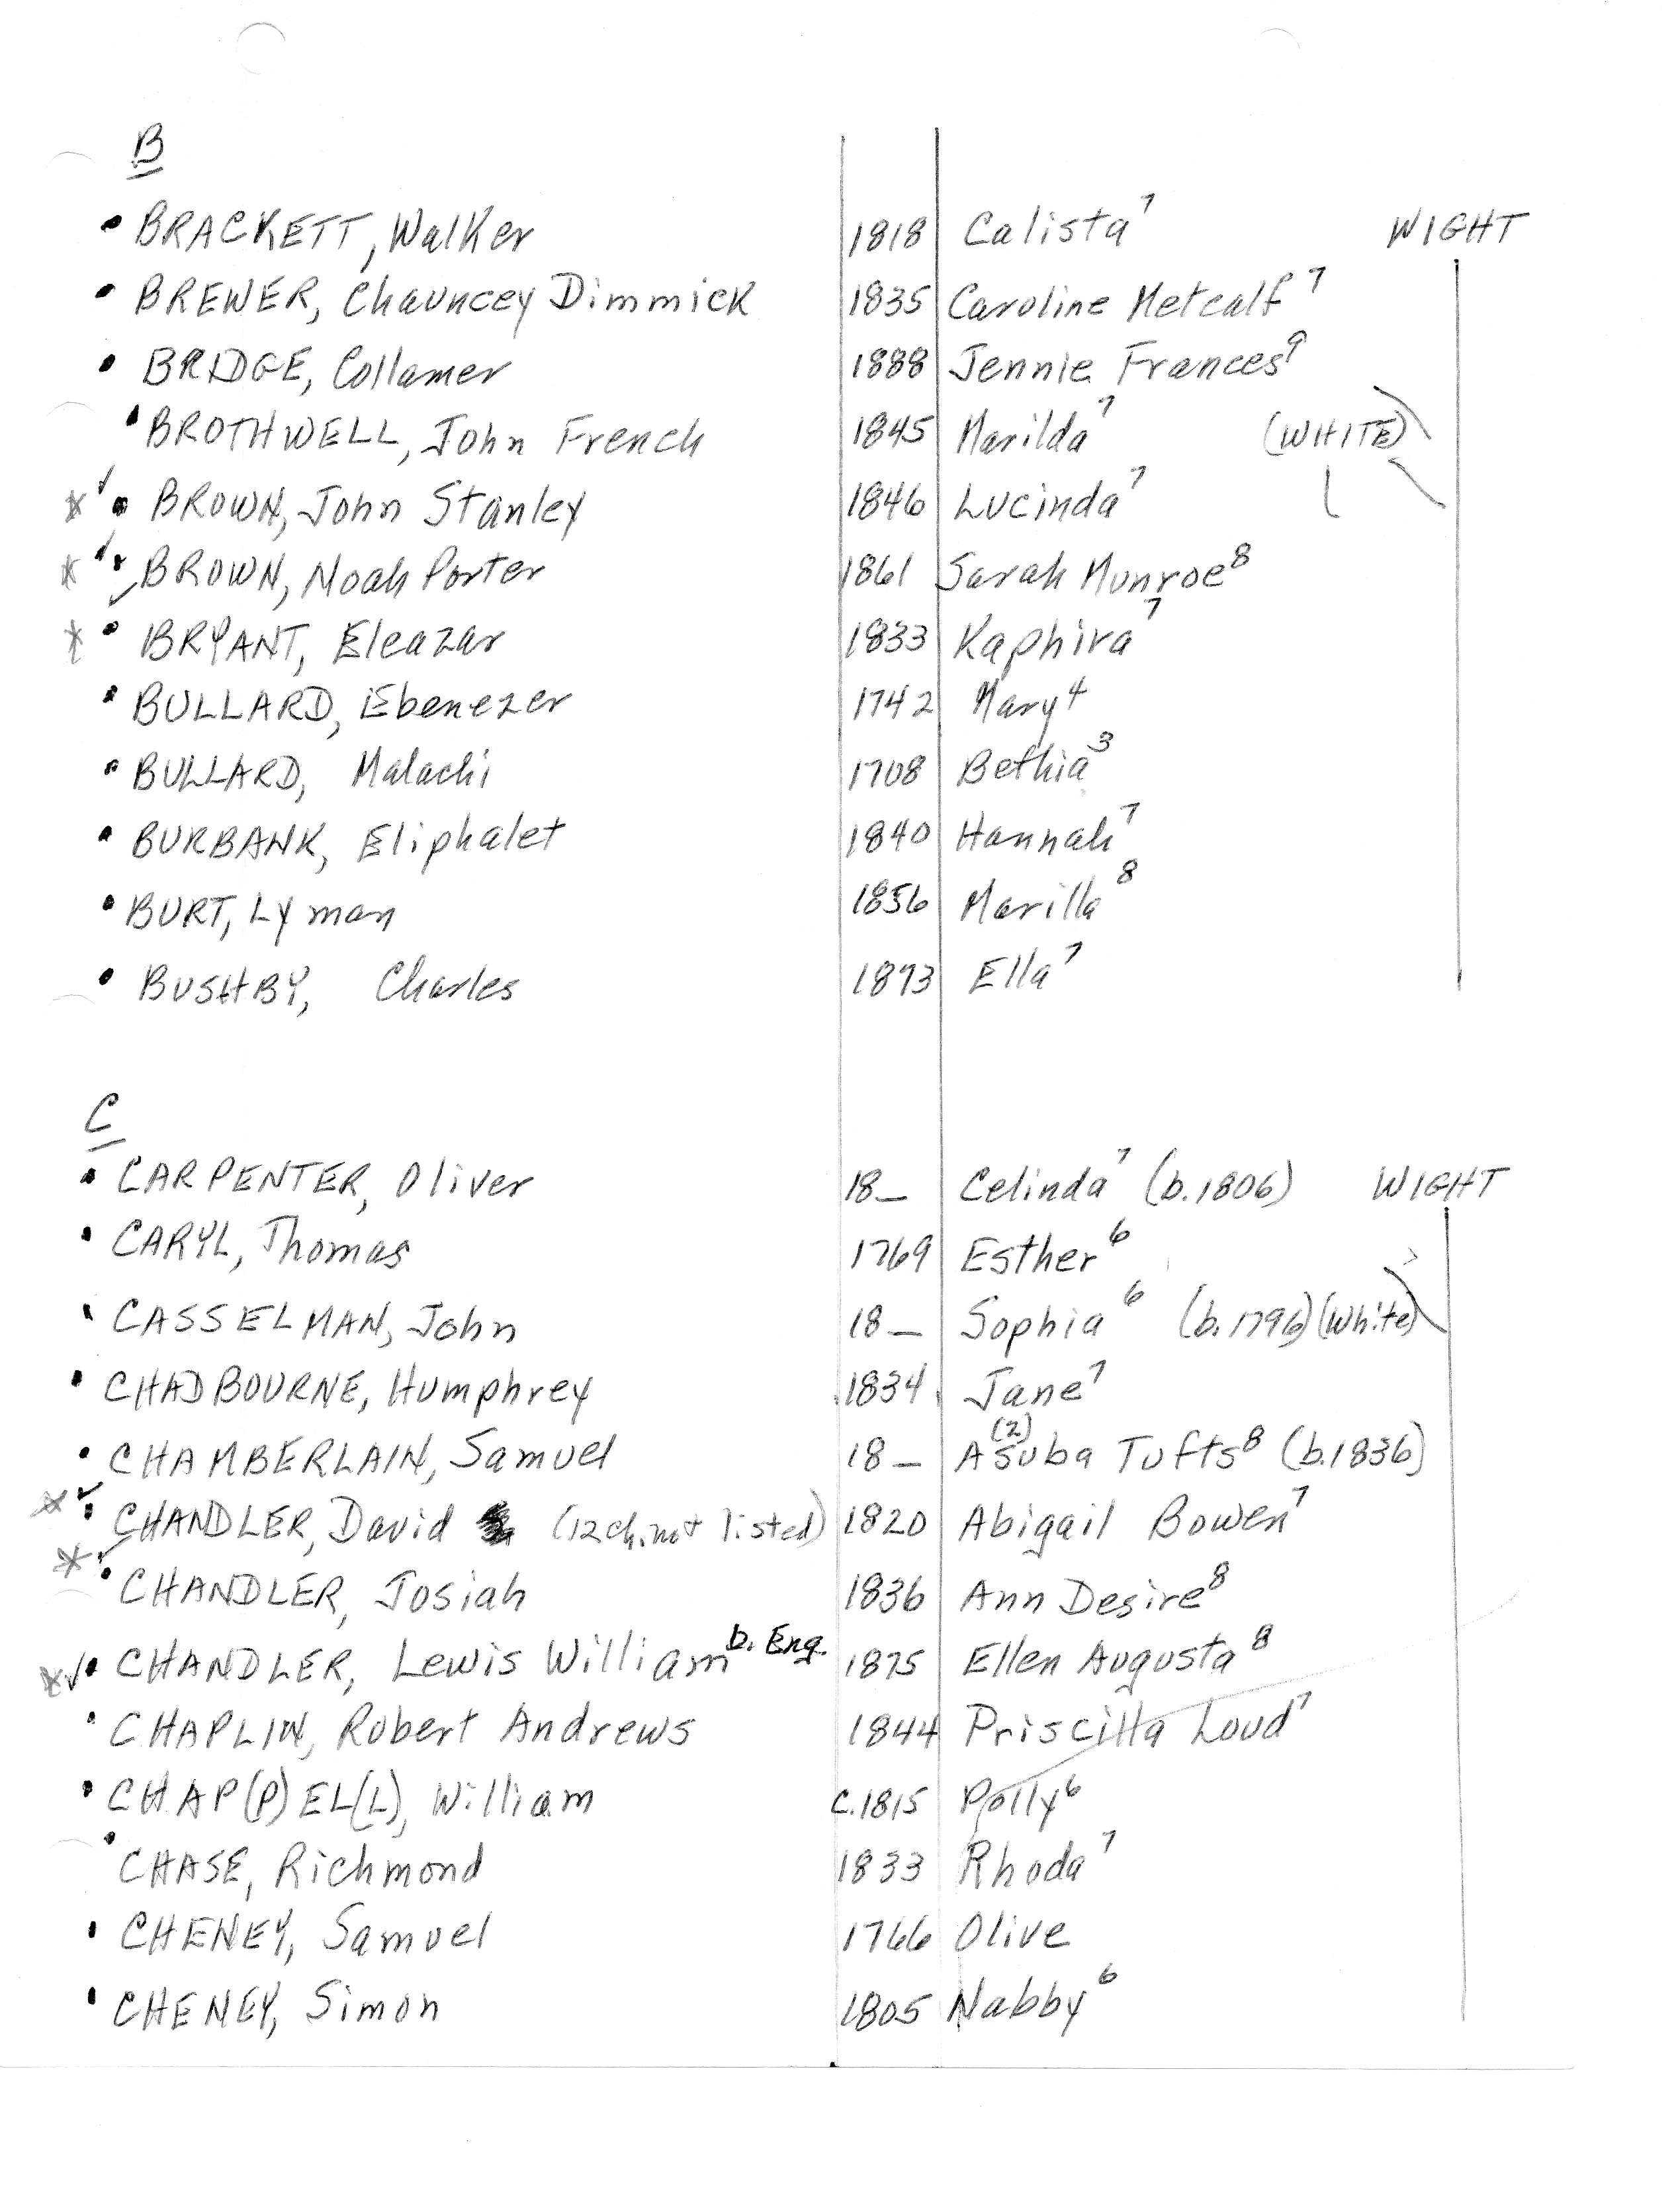 B
• BRACKETT, Walker 1818 Calista⁷ WIGHT
• BREWER, Chauncey Dimmick 1835 Caroline Metcalf⁷
• BRIDGE, Collamer 1888 Jennie Frances⁹
• BROTHWELL, John French 1845 Marilda⁷ (WHITE)
* ✓ • BROWN, John Stanley 1846 Lucinda⁷
* ✓ • BROWN, Noah Porter 1861 Sarah Munroe⁸
* • BRYANT, Eleazar 1833 Kaphira⁷
• BULLARD, Ebenezer 1742 Mary⁴
• BULLARD, Malachi 1708 Bethia³
• BURBANK, Eliphalet 1840 Hannah⁷
• BURT, Lyman 1856 Marilla⁸
• BUSHBY, Charles 1873 Ella⁷
C
• CARPENTER, Oliver 18_ Celinda⁷ (b.1806) WIGHT
• CARYL, Thomas 1769 Esther⁶
• CASSELMAN, John 18_ Sophia⁶ (b.1796) (White)
• CHADBOURNE, Humphrey 1834 Jane⁷
• CHAMBERLAIN, Samuel 18_ Asuba (2) Tufts⁸ (b.1836)
* ✓ • CHANDLER, David (12 ch. not listed) 1820 Abigail Bowen⁷
* ✓ • CHANDLER, Josiah 1836 Ann Desire⁸
* ✓ • CHANDLER, Lewis William b. Eng. 1875 Ellen Augusta⁸
• CHAPLIN, Robert Andrews 1844 Priscilla Loud⁷
• CHAP(P)EL(L), William c.1815 Polly⁶
• CHASE, Richmond 1833 Rhoda⁷
• CHENEY, Samuel 1766 Olive
• CHENEY, Simon 1805 Nabby⁶